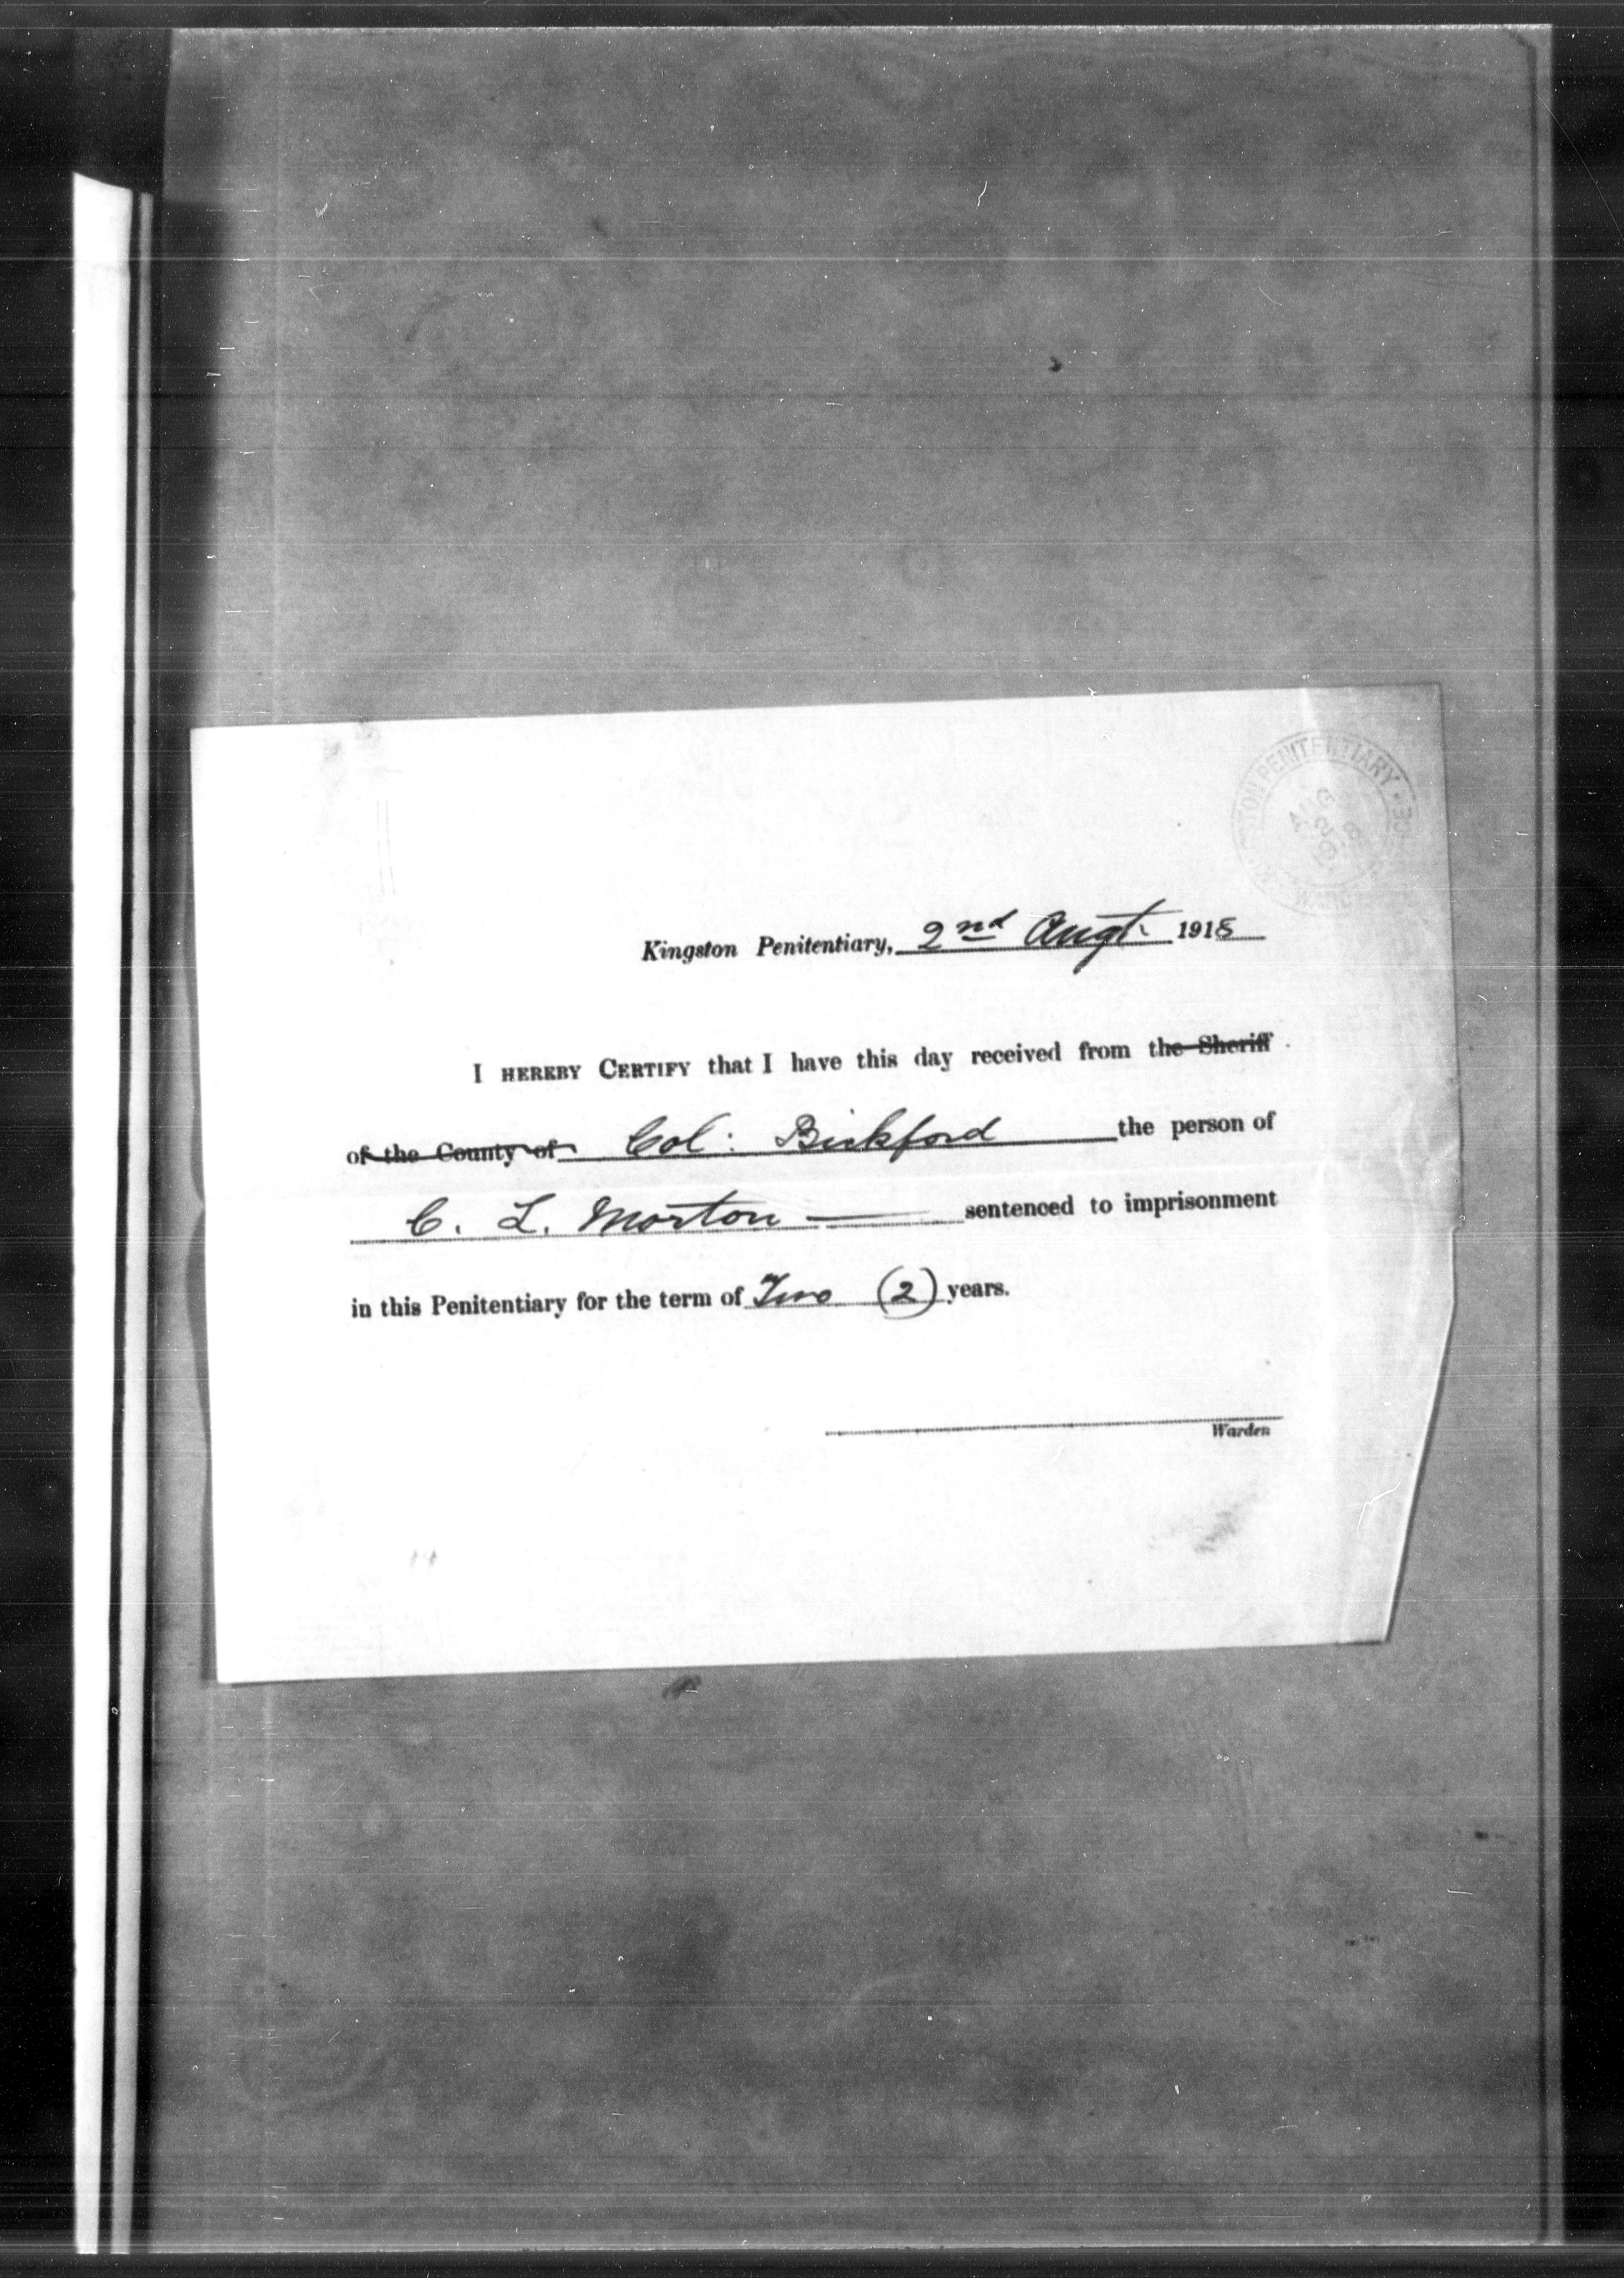 KINGSTON PENITENTIARY
AUG
2
1918
Kingston Penitentiary, 2nd Augt. 1918
I HEREBY CERTIFY that I have this day received from the Sheriff
of the County of Col: Bickford the person of
C. L. Morton — sentenced to imprisonment
in this Penitentiary for the term of Two (2) years.
Warden